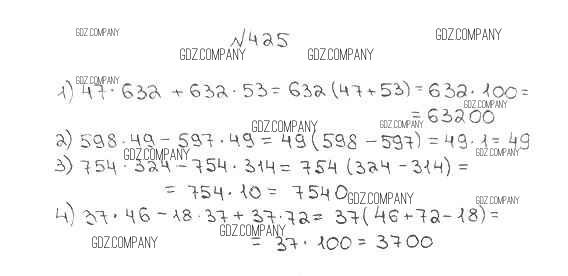 GDZ.COMPANY
№425
GDZ.COMPANY
GDZ.COMPANY GDZ.COMPANY
GDZ.COMPANY
1) 47·632 + 632·53 = 632(47+53) = 632·100 =
GDZ.COMPANY
= 63200
GDZ.COMPANY GDZ.COMPANY
2) 598·49 - 597·49 = 49(598 - 597) = 49·1 = 49
GDZ.COMPANY GDZ.COMPANY
3) 754·324 - 754·314 = 754(324 - 314) =
= 754·10 = 7540
GDZ.COMPANY GDZ.COMPANY
4) 37·46 - 18·37 + 37·72 = 37(46+72-18) =
GDZ.COMPANY
= 37·100 = 3700
GDZ.COMPANY